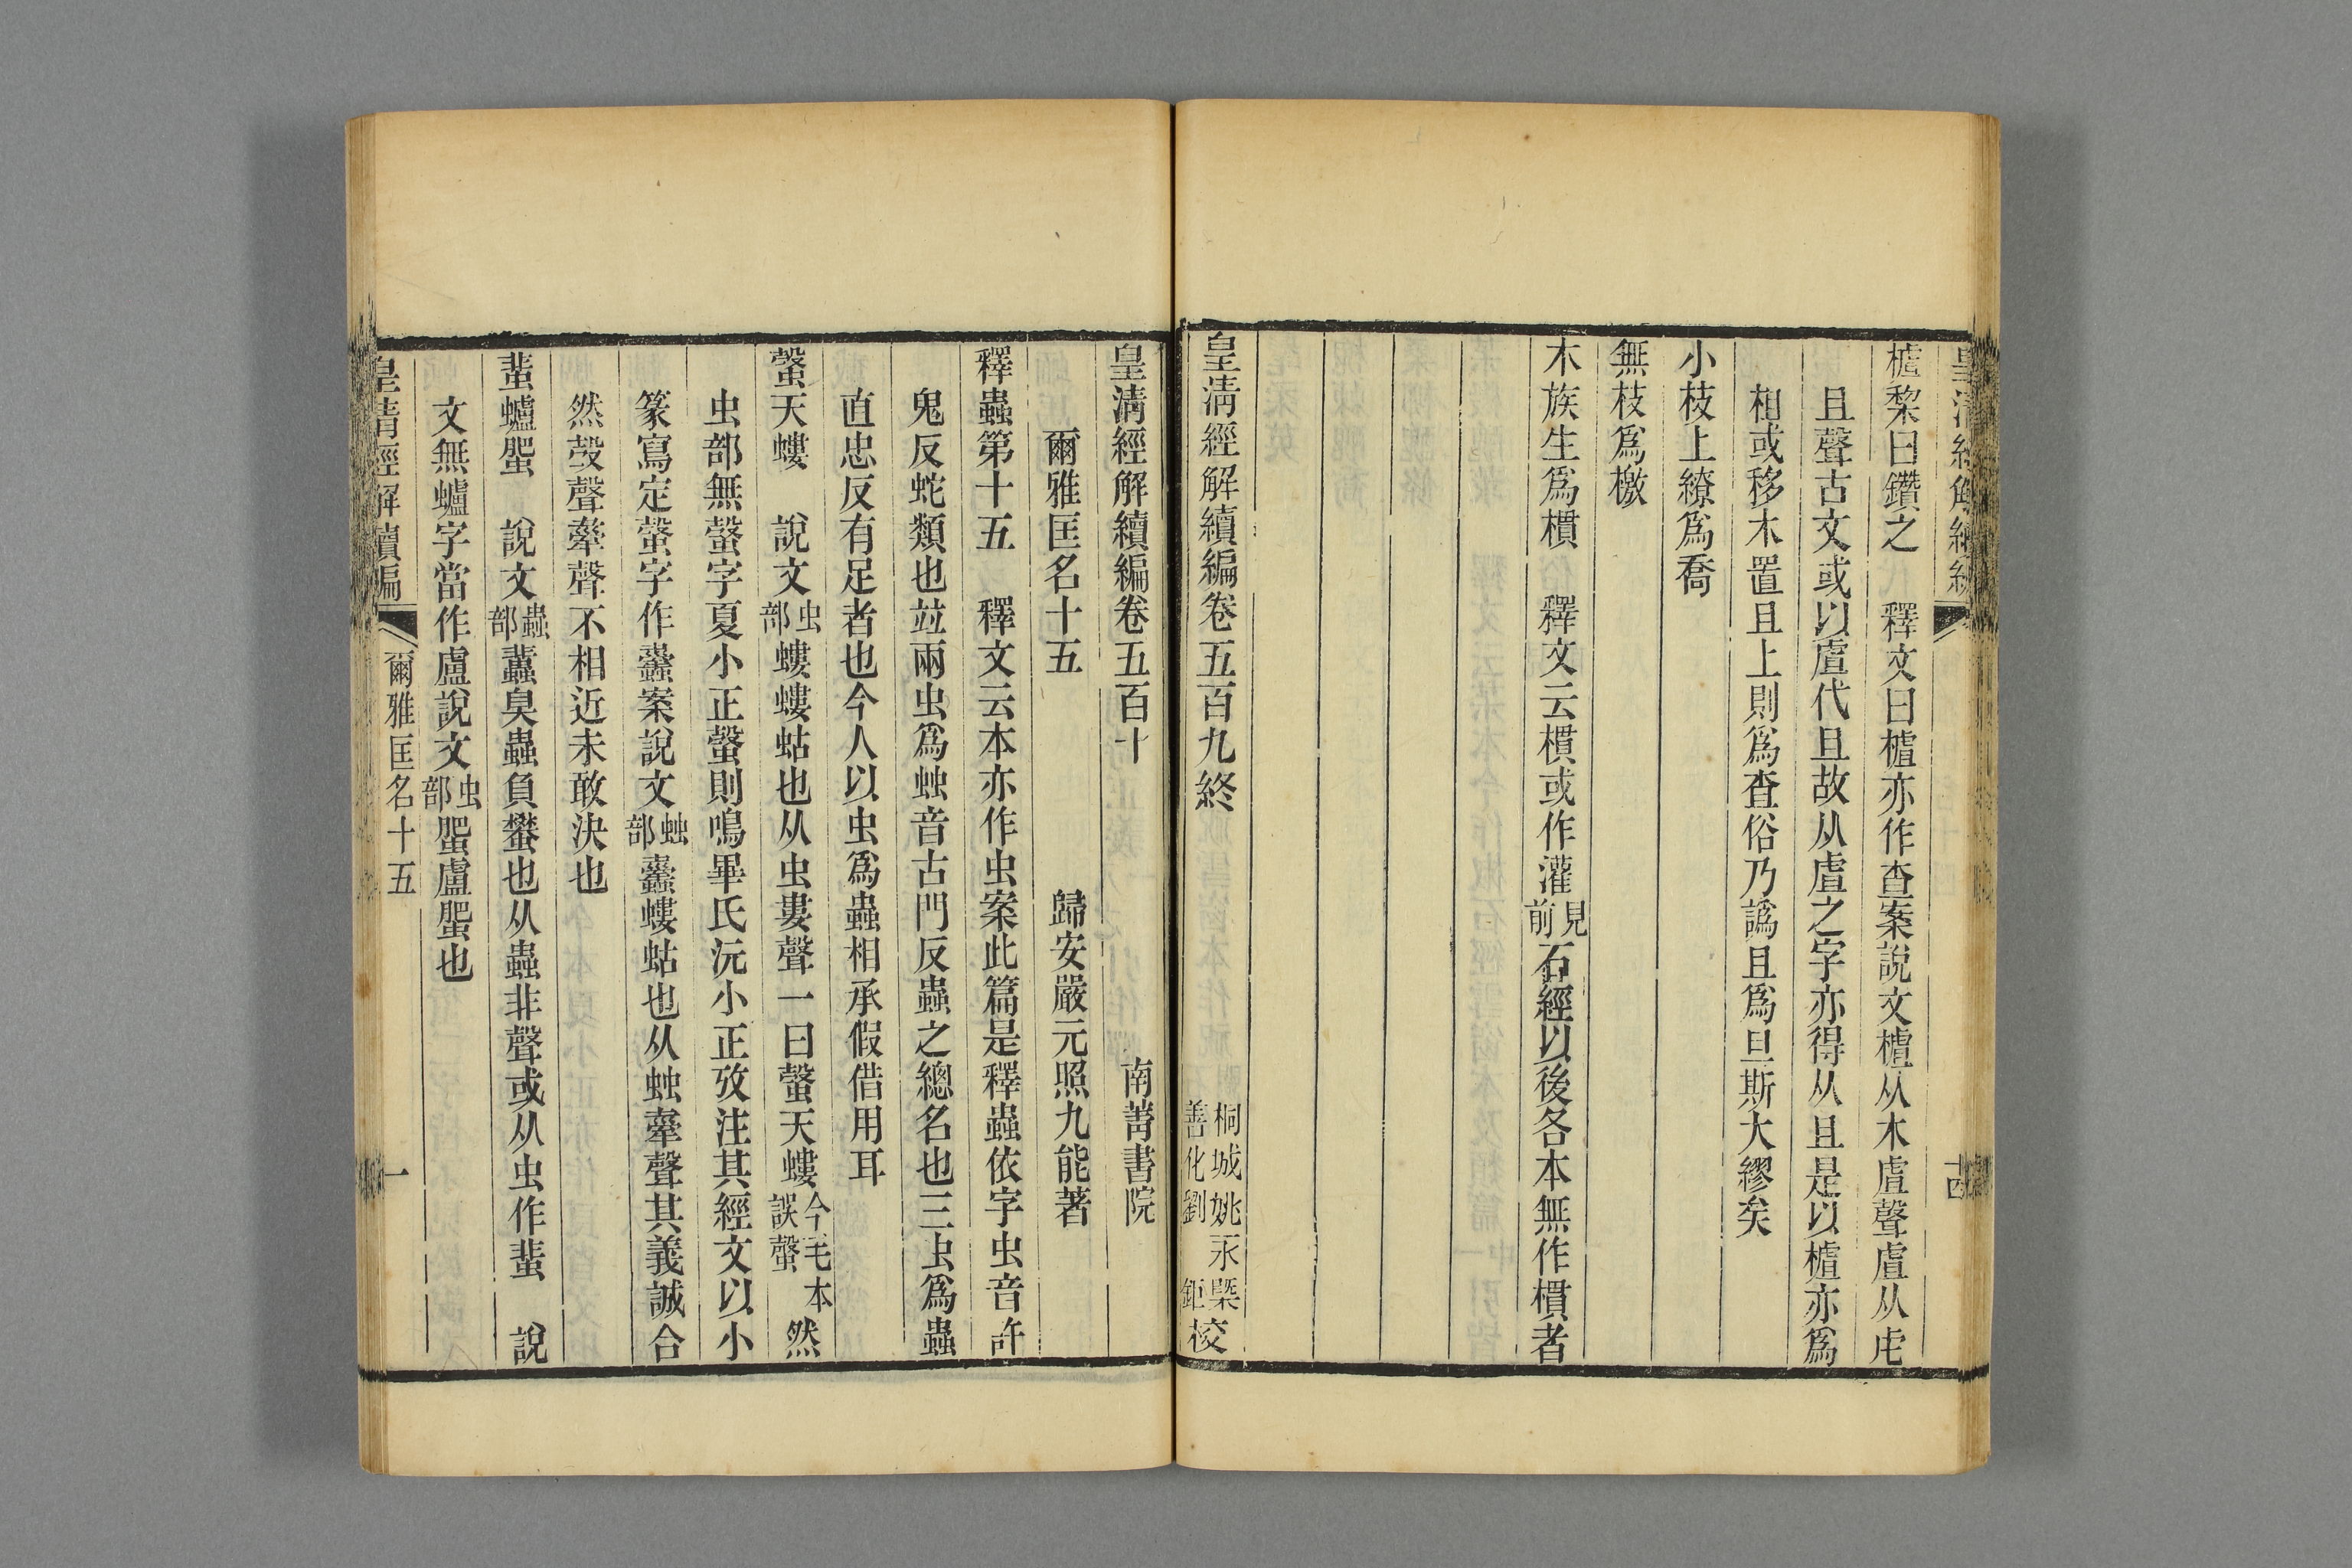 皇清經解續編
十四
樝黎曰鑽之　釋文曰樝亦作查案說文樝从木虘聲虘从虍
且聲古文或以虘代且故从虘之字亦得从且是以樝亦爲
相或移木置且上則爲査俗乃譌且爲旦斯大繆矣
小枝上繚爲喬
無枝爲檄
木族生爲樌　釋文云樌或作灌見前石經以後各本無作樌者
皇清經解續編卷五百九終
桐城姚永㮣
善化劉鉅
校
皇清經解續編卷五百十
南菁書院
爾雅匡名十五
歸安嚴元照九能著
釋蟲第十五　釋文云本亦作虫案此篇是釋蟲依字虫音許
鬼反蛇類也竝兩虫爲䖵音古門反蟲之總名也三虫爲蟲
直忠反有足者也今人以虫爲蟲相承假借用耳
螜天螻　說文虫部螻螻蛄也从虫婁聲一曰螜天螻今毛本誤螜然
虫部無螜字夏小正螜則鳴畢氏沅小正攷注其經文以小
篆寫定螜字作蠽案說文䖵部蠽螻蛄也从䖵聲其義誠合
然㱿聲聲不相近未敢決也
蜚蠦蜰　說文蟲部蠹臭蟲負蠜也从蟲非聲或从虫作蜚　說
文無蠦字當作盧說文虫部蜰盧蜰也
皇清經解續編
爾雅匡名十五
一